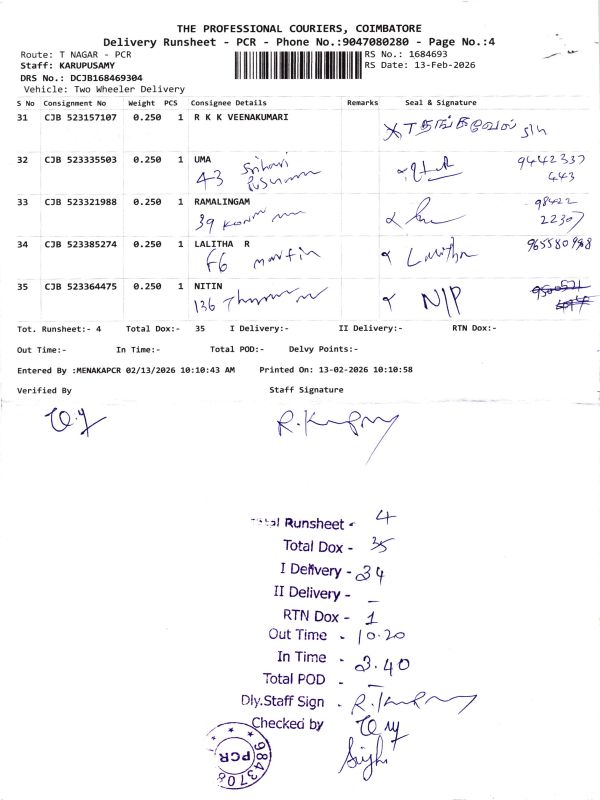 THE PROFESSIONAL COURIERS, COIMBATORE
Delivery Runsheet - PCR - Phone No.:9047080280 - Page No.:4
Route: T NAGAR - PCR RS No.: 1684693
Staff: KARUPUSAMY RS Date: 13-Feb-2026
DRS No.: DCJB168469304
Vehicle: Two Wheeler Delivery
S No Consignment No Weight PCS Consignee Details Remarks Seal & Signature
31 CJB 523157107 0.250 1 R K K VEENAKUMARI
தங்கவேல் S/o
32 CJB 523335503 0.250 1 UMA 9442337
43 443
33 CJB 523321988 0.250 1 RAMALINGAM 98422
39 22307
34 CJB 523385274 0.250 1 LALITHA R
F6 martin Lalitha
35 CJB 523364475 0.250 1 NITIN
136 N/P
Tot. Runsheet:- 4 Total Dox:- 35 I Delivery:- II Delivery:- RTN Dox:-
Out Time:- In Time:- Total POD:- Delvy Points:-
Entered By :MENAKAPCR 02/13/2026 10:10:43 AM Printed On: 13-02-2026 10:10:58
Verified By Staff Signature
Total Runsheet - 4
Total Dox - 35
I Delivery - 34
II Delivery - -
RTN Dox - 1
Out Time - 10.20
In Time - 3.40
Total POD - -
Dly.Staff Sign -
Checked by -
PCR